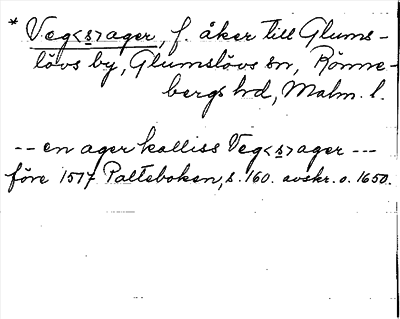 * Veg<s>ager, f. åker till Glums-
lövs by, Glumslövs sn, Rönne-
bergs hd, Malm. l.
-- en ager kalliss Veg<s>ager ---
före 1517 Palteboken, s. 160. avskr. o. 1650.